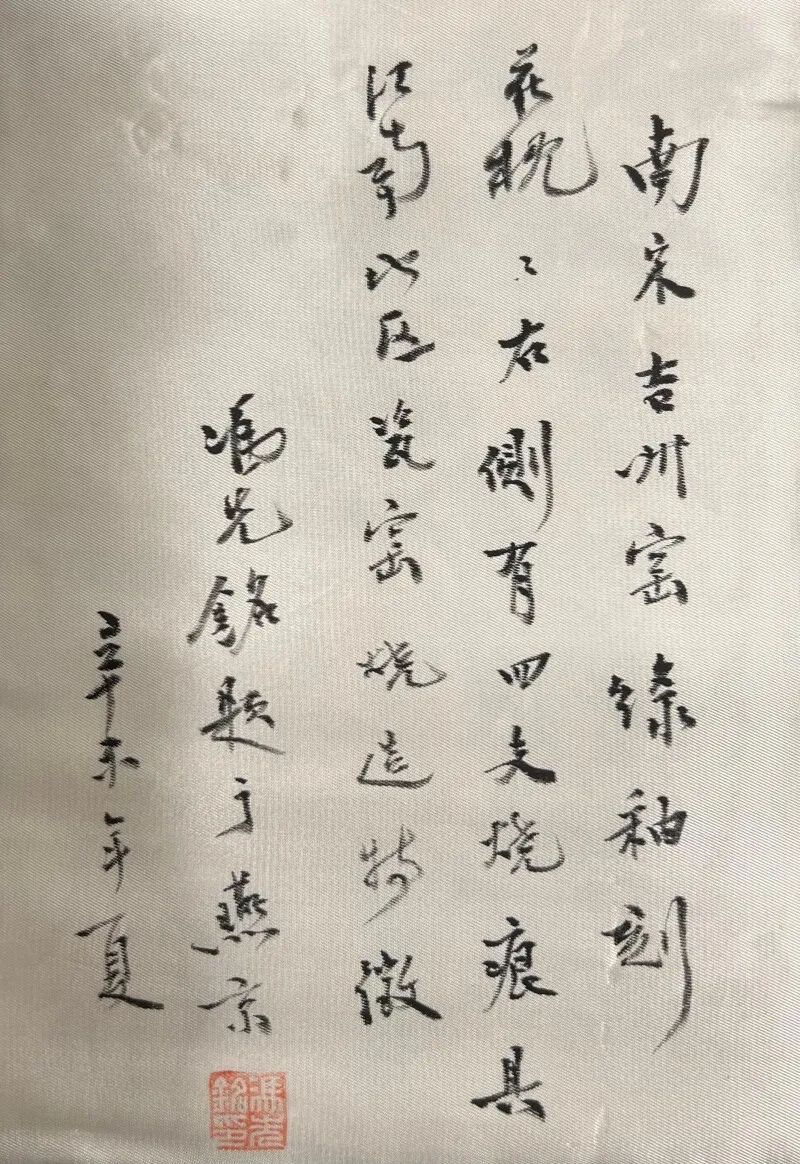 南宋吉州窑绿釉刻
花枕〻右侧有四支烧痕具
江南地区瓷窑烧造特徵
冯先铭题于燕京
辛未年夏
冯先铭印